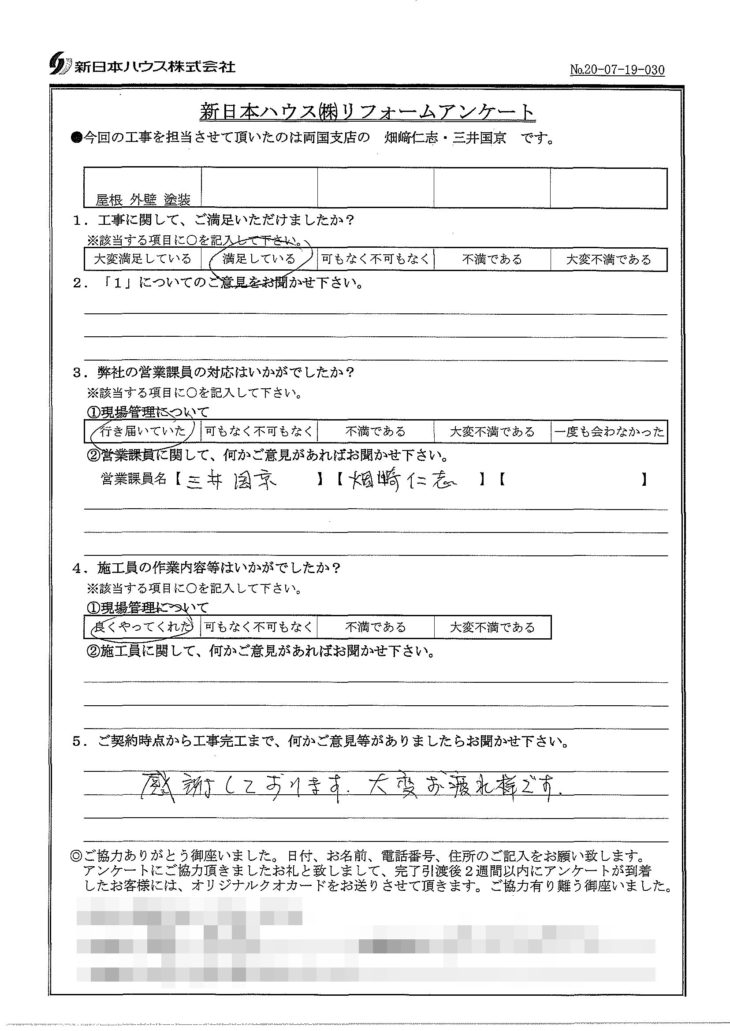 新日本ハウス株式会社
No.20-07-19-030
新日本ハウス㈱リフォームアンケート
●今回の工事を担当させて頂いたのは両国支店の 畑﨑仁志・三井国京 です。
屋根 外壁 塗装
1．工事に関して、ご満足いただけましたか？
※該当する項目に○を記入して下さい。
大変満足している 満足している 可もなく不可もなく 不満である 大変不満である
2．「1」についてのご意見をお聞かせ下さい。
3．弊社の営業課員の対応はいかがでしたか？
※該当する項目に○を記入して下さい。
①現場管理について
行き届いていた 可もなく不可もなく 不満である 大変不満である 一度も会わなかった
②営業課員に関して、何かご意見があればお聞かせ下さい。
営業課員名【三井国京 】【畑﨑仁志 】【 】
4．施工員の作業内容等はいかがでしたか？
※該当する項目に○を記入して下さい。
①現場管理について
良くやってくれた 可もなく不可もなく 不満である 大変不満である
②施工員に関して、何かご意見があればお聞かせ下さい。
5．ご契約時点から工事完工まで、何かご意見等がありましたらお聞かせ下さい。
感謝しております。大変お疲れ様です。
◎ご協力ありがとう御座いました。日付、お名前、電話番号、住所のご記入をお願い致します。
アンケートにご協力頂きましたお礼と致しまして、完了引渡後２週間以内にアンケートが到着
したお客様には、オリジナルクオカードをお送りさせて頂きます。ご協力有り難う御座いました。